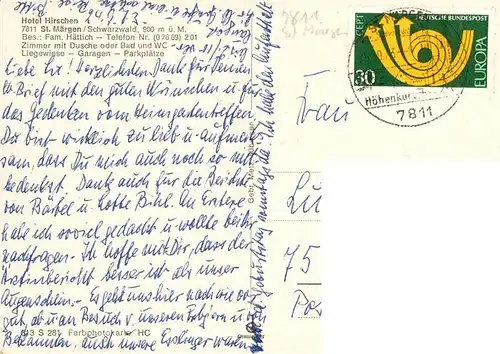 Hotel Hirschen
7811 St. Märgen / Schwarzwald, 900 m ü. M.
Bes.: Fam. Hättich – Telefon Nr. (07669) 201
Zimmer mit Dusche oder Bad und WC
Liegewiese – Garagen – Parkplätze
Liebe ! Herzlichsten Dank für Deinen
Brief mit den guten Wünschen u. für
das Gedenken vom
Du bist wirklich zu lieb u. aufmerk-
sam, dass Du mich auch noch so mit
bedenkst. Dank auch für die Berichte
von Bärbel u. Lotte Bihl. An Erstere
habe ich soviel gedacht u. wollte bei ihr
nachfragen. Ich hoffe mit Dir, dass der
Ärztinbericht besser ist als unser
Augenschein. Es geht uns hier nach wie vor
gut, ab u. an Besuch v. unseren u. von
Bekannten, auch unsere Esslinger waren
Ich habe den Aufenthalt
613 S 281 Farbphotokarte HC
7811
St. Märgen
Frau
75
CEPT
DEUTSCHE BUNDESPOST
30
EUROPA
Höhenkur
7811